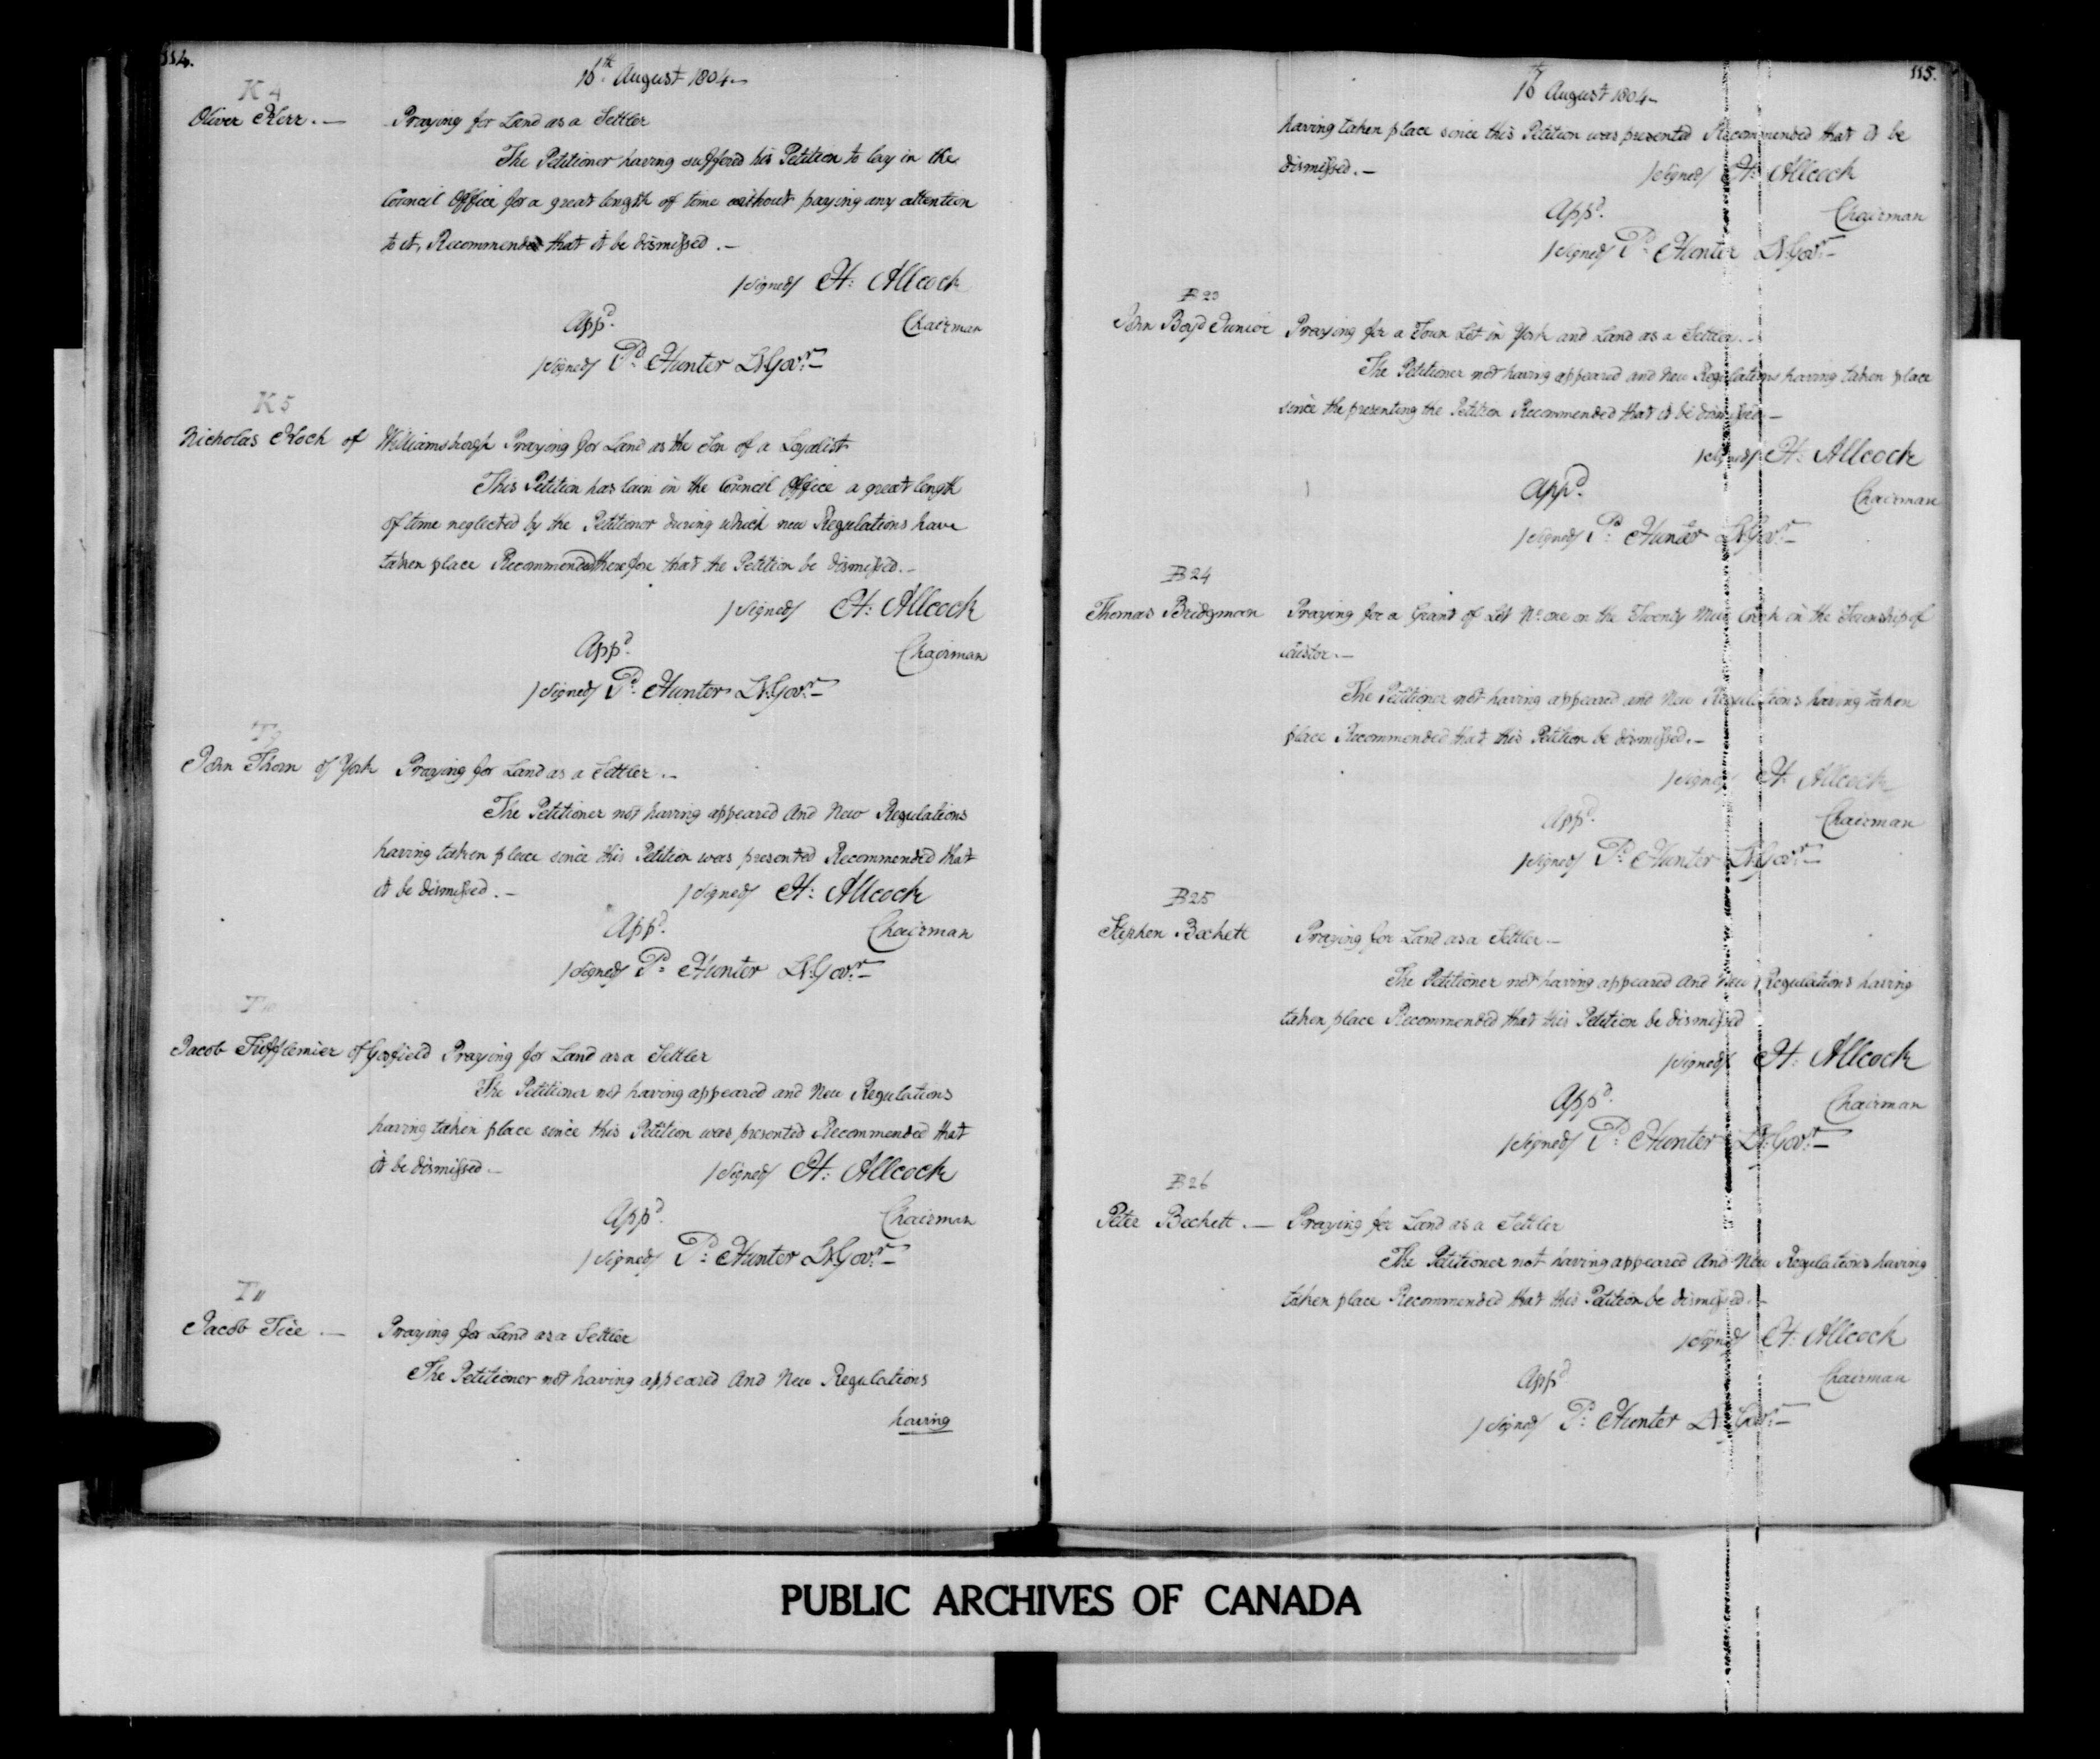 114.
16th August 1804.
K 4
Oliver Kerr. — Praying for Land as a Settler
The Petitioner having suffered his Petition to lay in the
Council Office for a great length of time without paying any attention
to it, Recommended that it be dismissed. —
/signed/ H: Allcock
Appd. Chairman
/signed/ Pr. Hunter Lt. Govr. —
K 5
Nicholas Kock of Williamsburgh Praying for Land as the Son of a Loyalist
This Petition has lain in the Council Office a great length
of time neglected by the Petitioner during which new Regulations have
taken place Recommended therefore that the Petition be dismissed. —
/signed/ H: Allcock
Appd. Chairman
/signed/ Pr. Hunter Lt. Govr. —
T 9
John Thom of York Praying for Land as a Settler. —
The Petitioner not having appeared And New Regulations
having taken place since this Petition was presented Recommended that
it be dismissed. — /signed/ H: Allcock
Appd. Chairman
/signed/ Pr. Hunter Lt. Govr. —
T 10
Jacob Tufflemier of Gosfield Praying for Land as a Settler
The Petitioner not having appeared and New Regulations
having taken place since this Petition was presented Recommended that
it be dismissed — /signed/ H: Allcock
Appd. Chairman
/signed/ Pr. Hunter Lt. Govr. —
T 11
Jacob Tice. — Praying for Land as a Settler
The Petitioner not having appeared And New Regulations
having
115.
16th August 1804
having taken place since this Petition was presented Recommended that it be
dismissed. — /signed/ H: Allcock
Appd. Chairman
/signed/ Pr. Hunter Lt. Govr. —
B 23
John Boyd Junior Praying for a Town Lot in York and Land as a Settler. —
The Petitioner not having appeared and New Regulations having taken place
since the presenting the Petition Recommended that it be dismissed —
/signed/ H: Allcock
Appd. Chairman
/signed/ Pr. Hunter Lt. Govr. —
B 24
Thomas Bridgman Praying for a Grant of Lot No. one on the Twenty Mile Creek in the Township of
Caistor. —
The Petitioner not having appeared and New Regulations having taken
place Recommended that this Petition be dismissed. —
/signed/ H: Allcock
Appd. Chairman
/signed/ Pr. Hunter Lt. Govr. —
B 25
Stephen Beckett Praying for Land as a Settler —
The Petitioner not having appeared And New Regulations having
taken place Recommended that this Petition be dismissed
/signed/ H: Allcock
Appd. Chairman
/signed/ Pr. Hunter Lt. Govr. —
B 26
Peter Beckett. — Praying for Land as a Settler
The Petitioner not having appeared And New Regulations having
taken place Recommended that this Petition be dismissed. —
/signed/ H: Allcock
Appd Chairman
/signed/ Pr. Hunter Lt. Govr. —
PUBLIC ARCHIVES OF CANADA